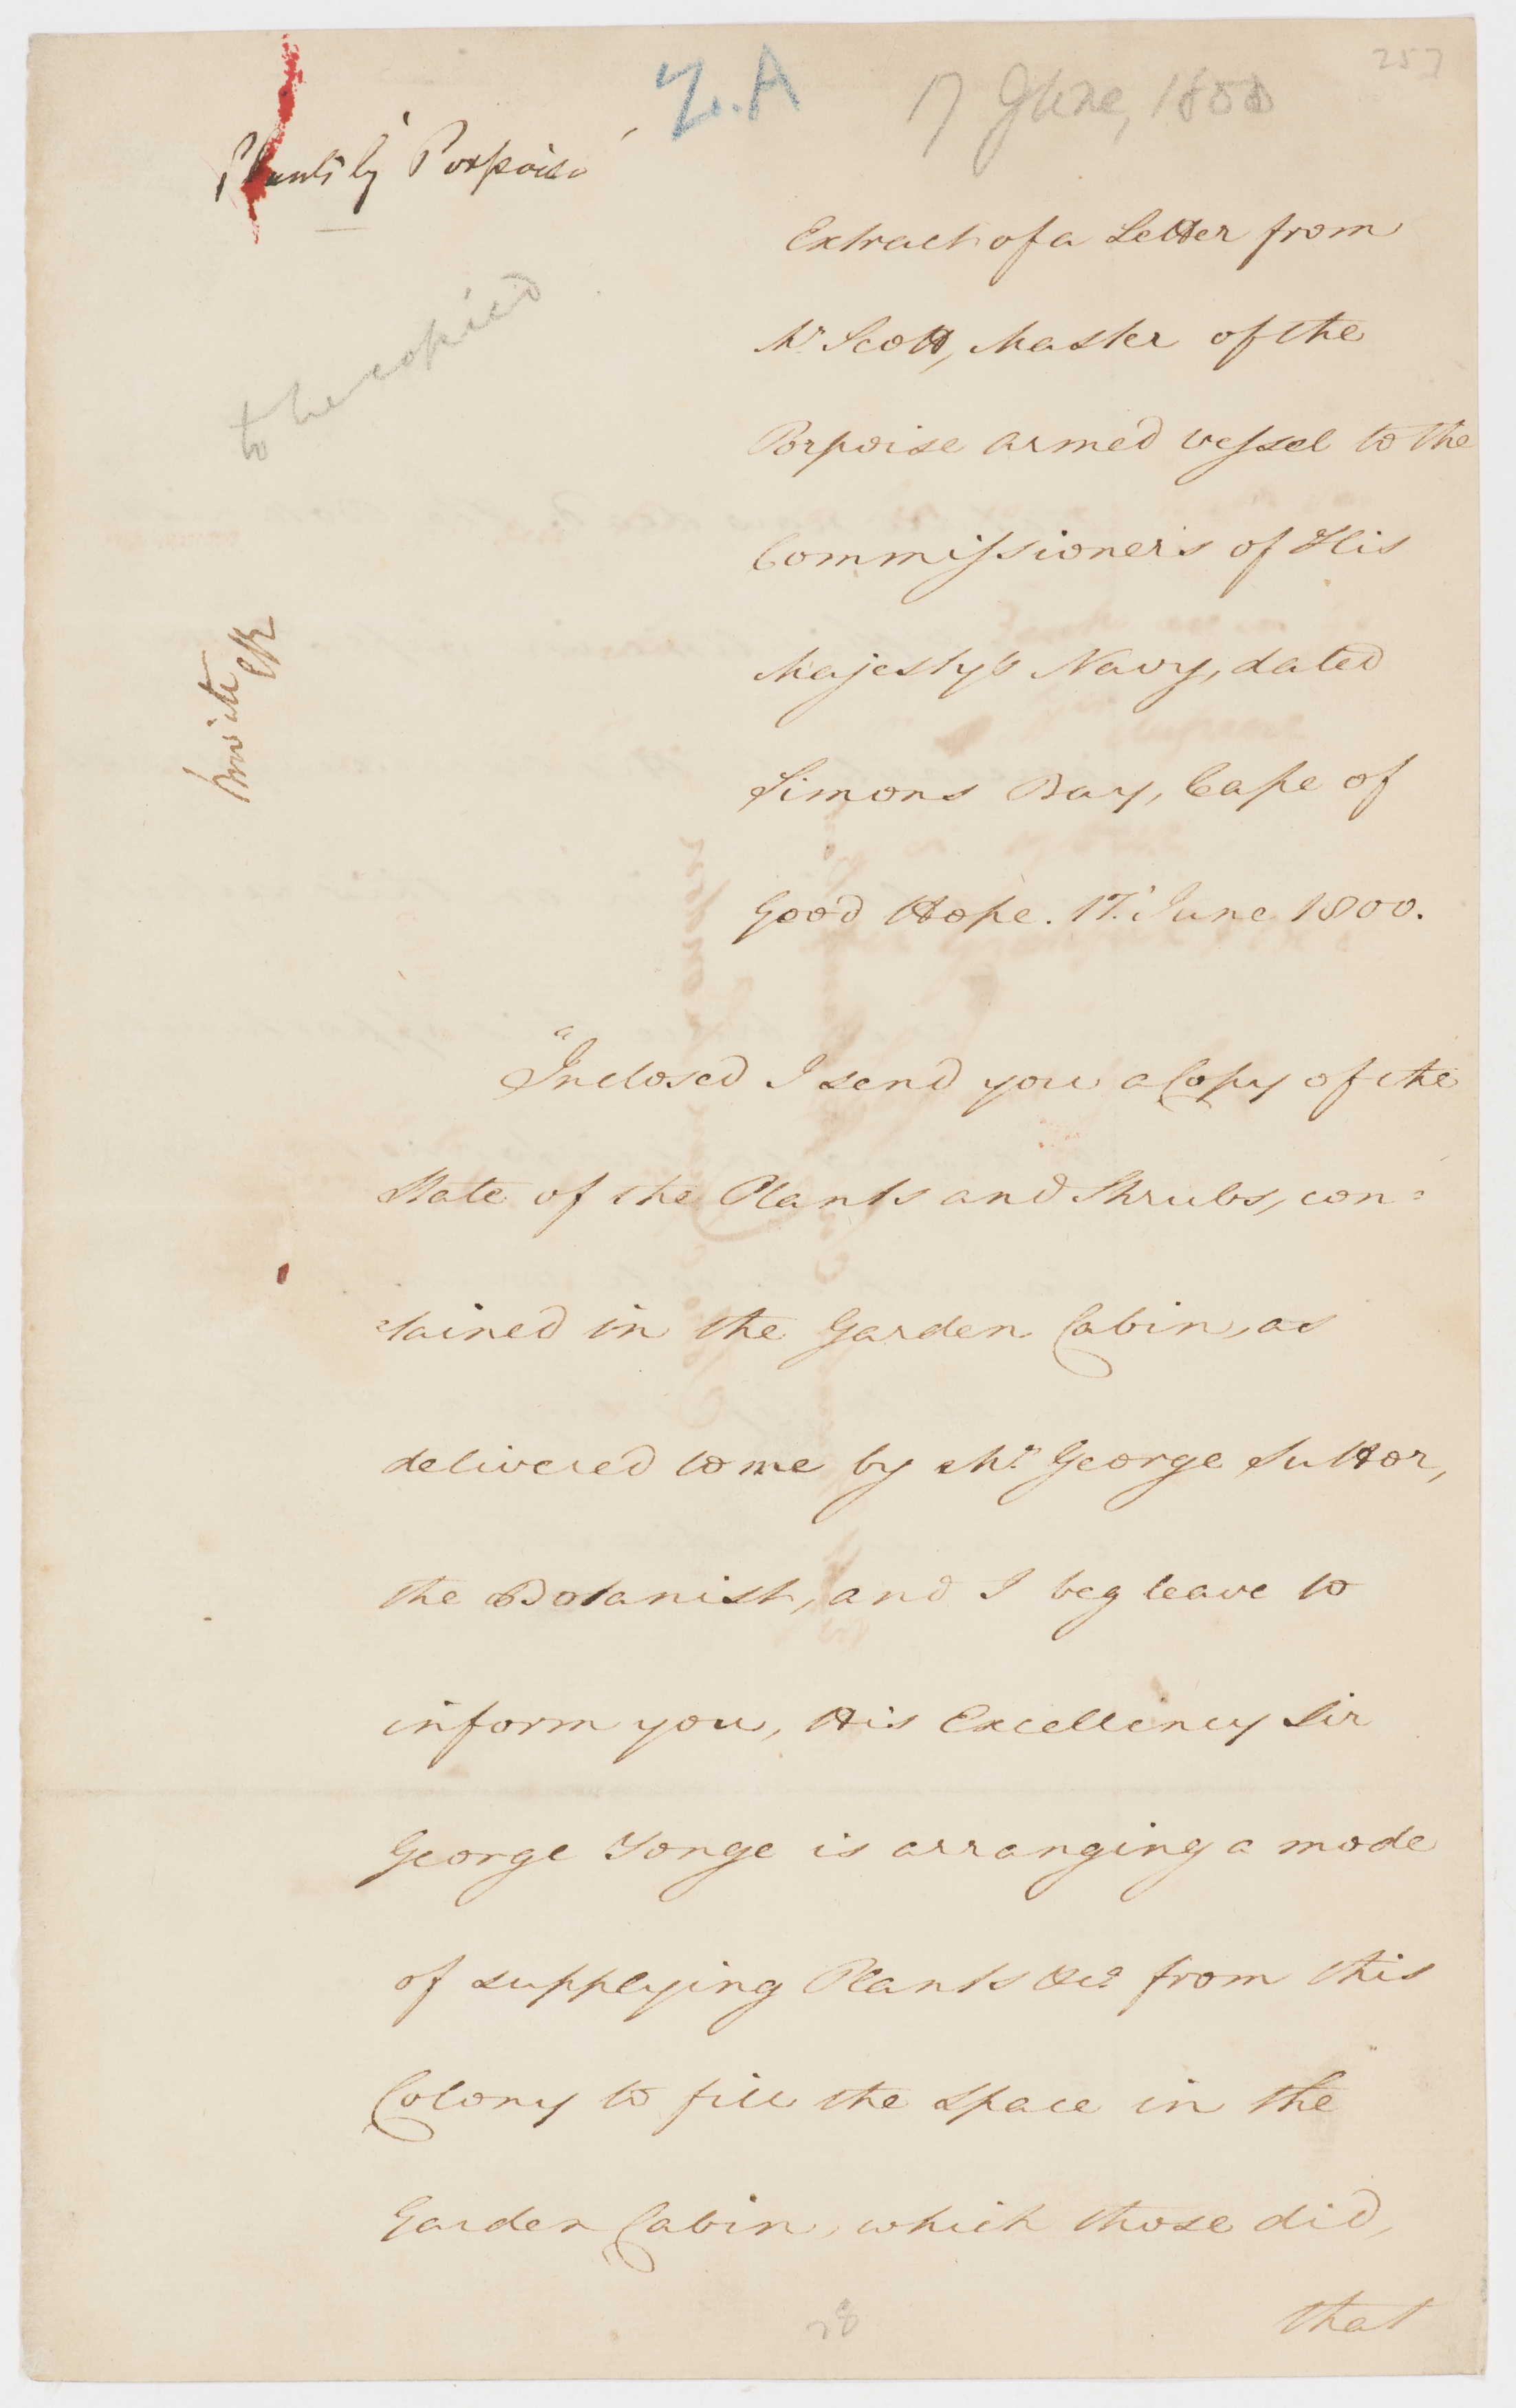 257
17 June, 1800
Plants by Porpoise
to be copied
Extract of a Letter from
Mr Scott, Master of the
Porpoise armed vessel to the
Commissioners of His
Majesty's Navy, dated
Simons Bay, Cape of
Good Hope. 17. June 1800.
"Inclosed I send you a Copy of the
State of the Plants and Shrubs, con=
=tained in the Garden Cabin, as
delivered to me by Mr. George Suttor,
the Botanist, and I beg leave to
inform you, His Excellency Sir
George Yonge is arranging a mode
of supplying Plants &ca from this
Colony to fill the space in the
Garden Cabin, which those did,
that
28